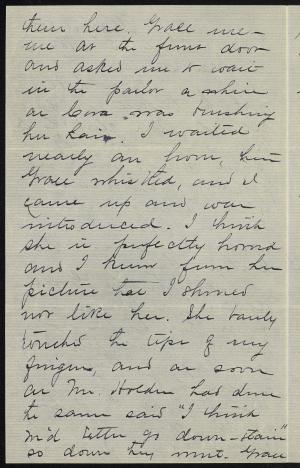 them here. Grace me-
me at the front door
and asked me to wait
in the parlor a while
as Cora was brushing
her hair. I waited
nearly an hour, then
Grace whistled, and I
came up and was
introduced. I think
she is perfectly horrid
and I knew from her
picture that I should
not like her. She barely
touched the tips of my
fingers, and as soon
as Mr. Holden had done
the same said "I think
we'd better go down-stairs"
so down they went. Grace